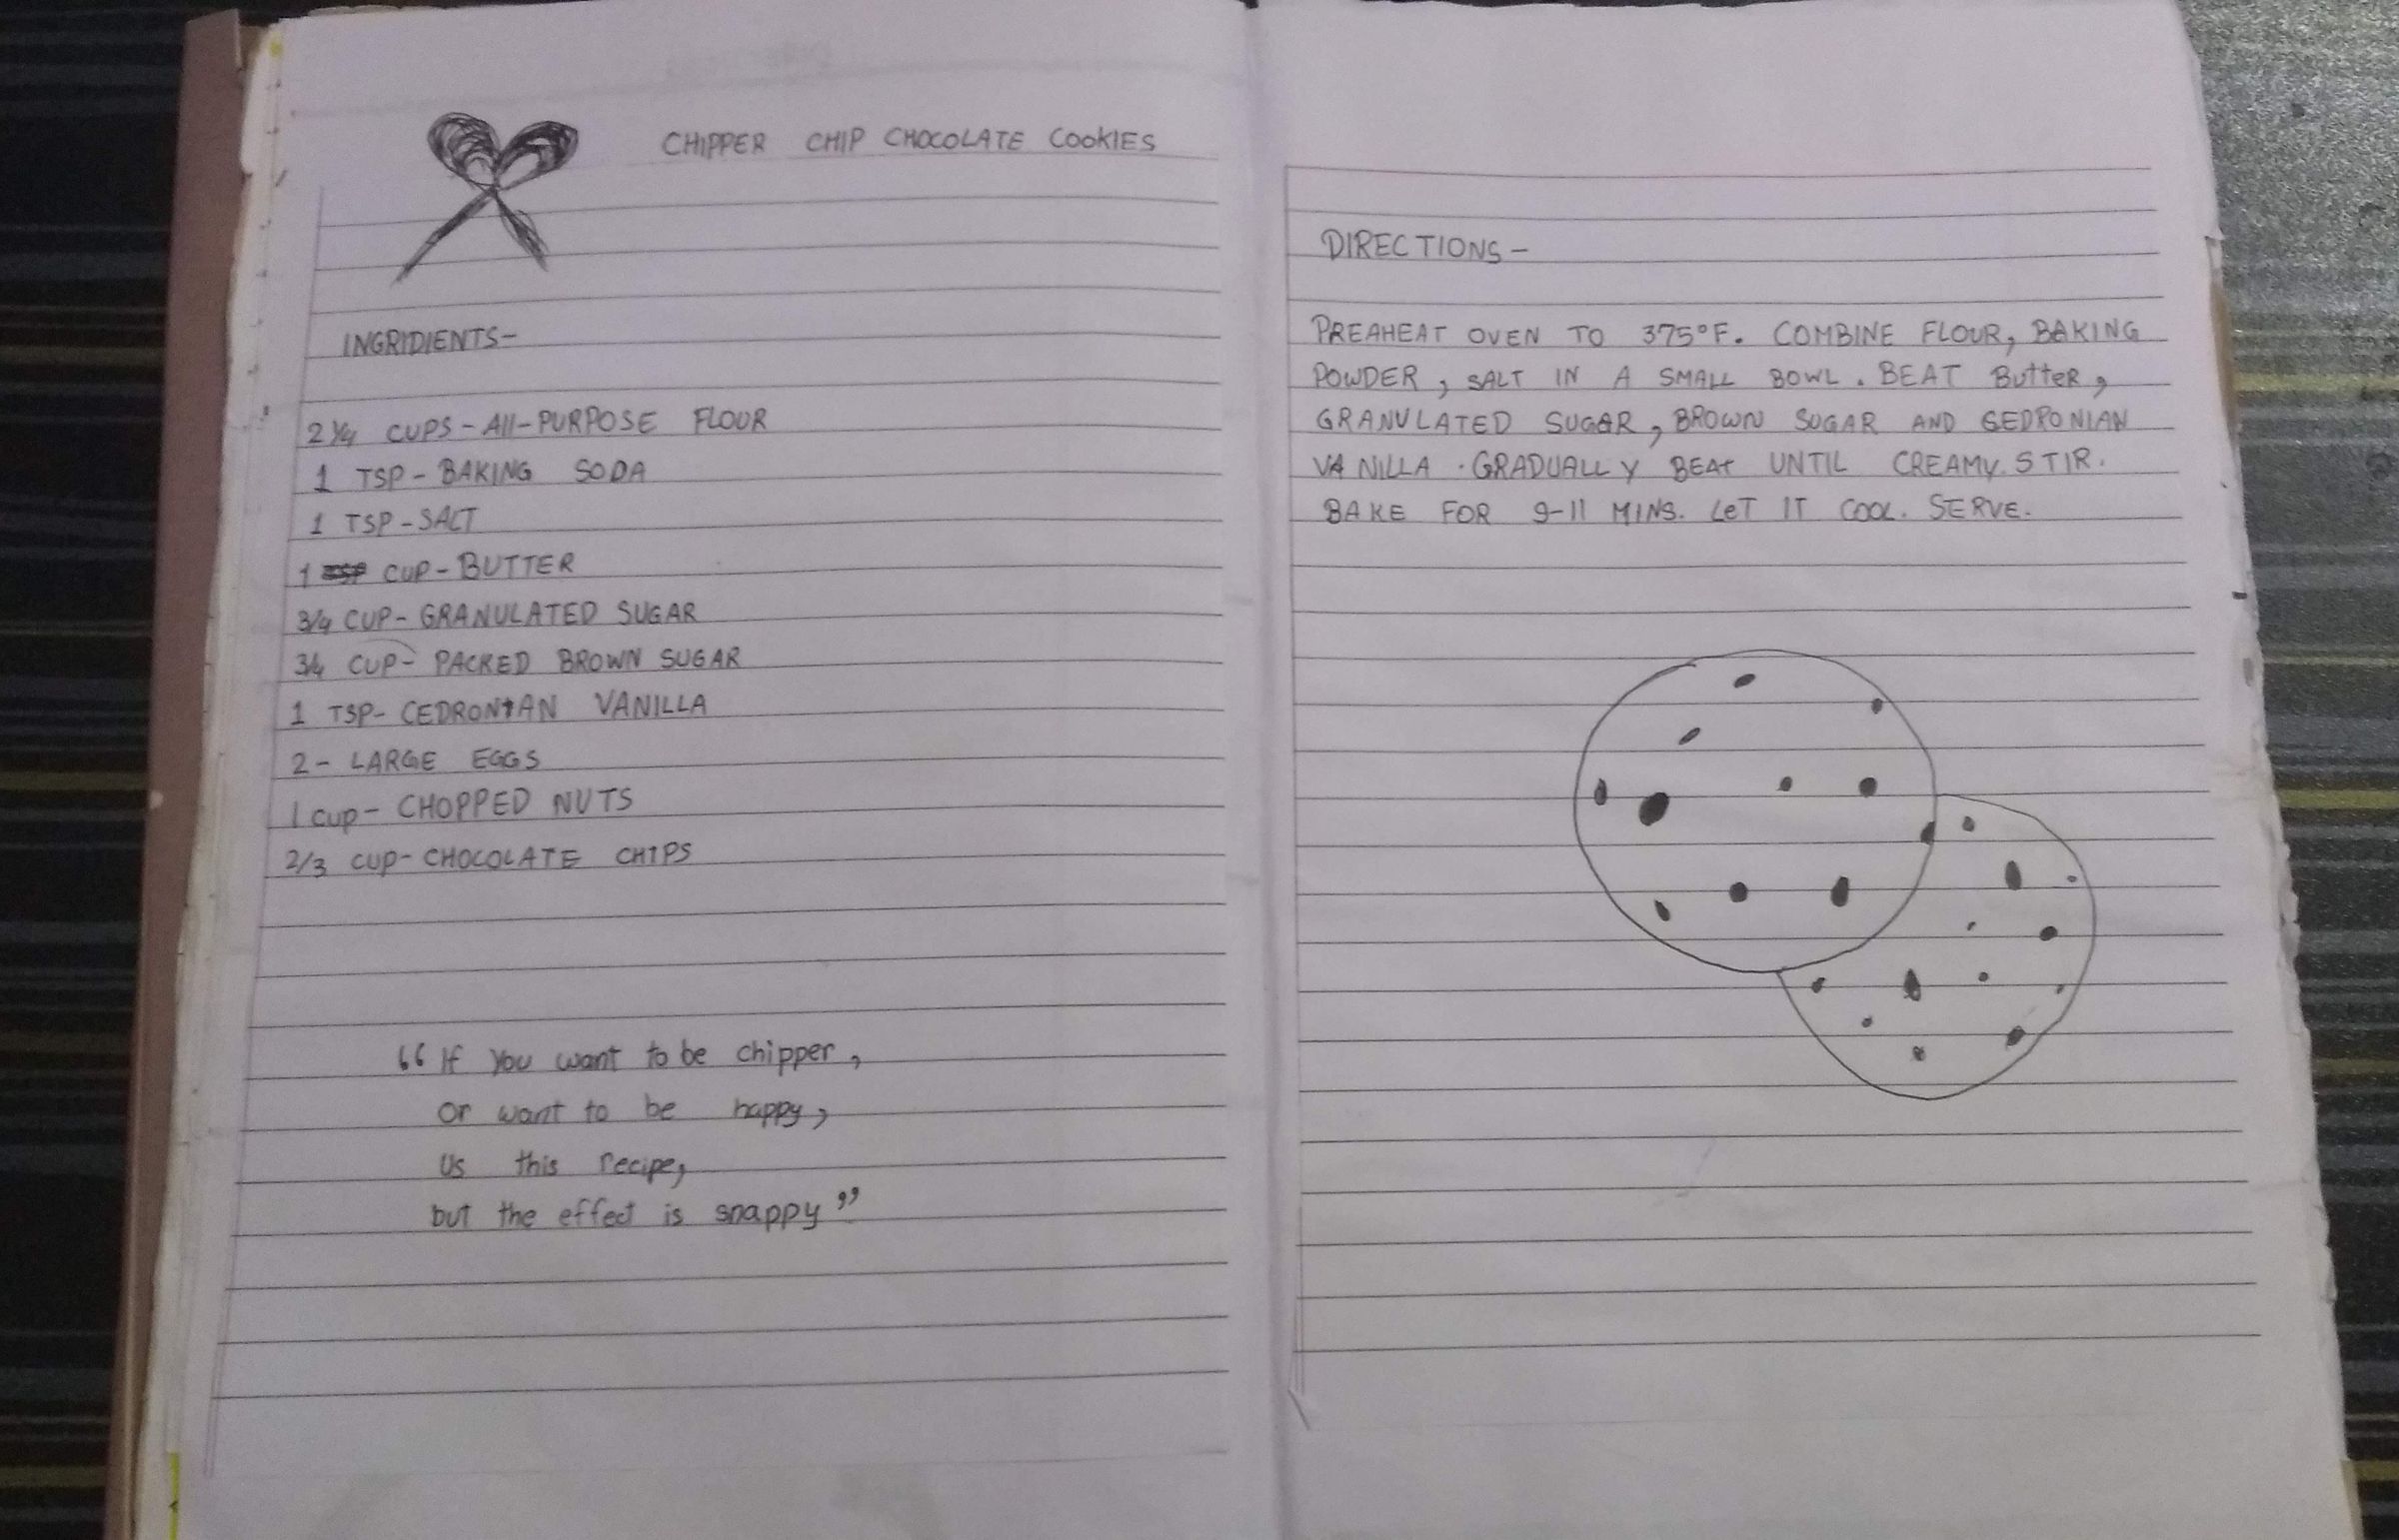 CHIPPER CHIP CHOCOLATE COOKIES
INGRIDIENTS-
2 1/4 CUPS - All-PURPOSE FLOUR
1 TSP - BAKING SODA
1 TSP - SALT
1 CUP - BUTTER
3/4 CUP - GRANULATED SUGAR
3/4 CUP - PACKED BROWN SUGAR
1 TSP - CEDRONIAN VANILLA
2 - LARGE EGGS
1 cup - CHOPPED NUTS
2/3 CUP - CHOCOLATE CHIPS
“If you want to be chipper,
or want to be happy,
us this recipe,
but the effect is snappy”
DIRECTIONS -
PREAHEAT OVEN TO 375°F. COMBINE FLOUR, BAKING
POWDER, SALT IN A SMALL BOWL. BEAT ButteR,
GRANULATED SUGAR, BROWN SUGAR AND GEDRONIAN
VANILLA. GRADUALLY BEAt UNTIL CREAMY. STIR.
BAKE FOR 9-11 MINS. LeT IT COOL. SERVE.